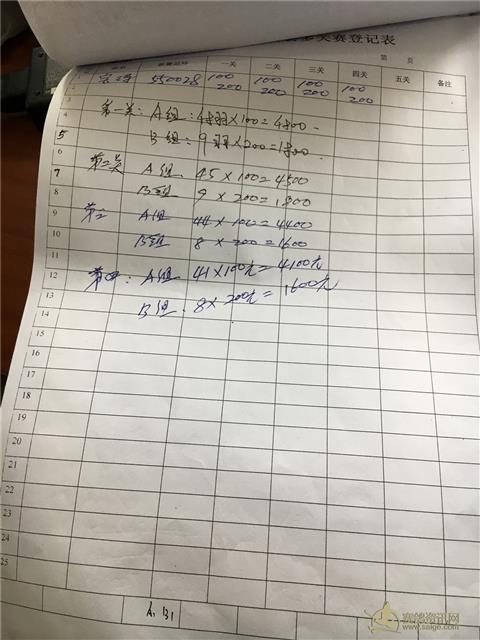 关赛登记表
第 页
一关 二关 三关 四关 五关 备注
550028 100 100 100 100
200 200 200 200
第一关: A组: 48羽×100=4800
B组: 9羽×200=1800
第二关 A组 45×100=4500
B组 9×200=1800
第三 A组 44×100=4400
B组 8×200=1600
第四: A组 41×100元=4100元
B组: 8×200元=1600元
2
3
4
5
6
7
8
9
10
11
12
13
14
15
16
17
18
19
20
21
22
23
24
25
A. B1
赛鸽资讯网
www.saige.com